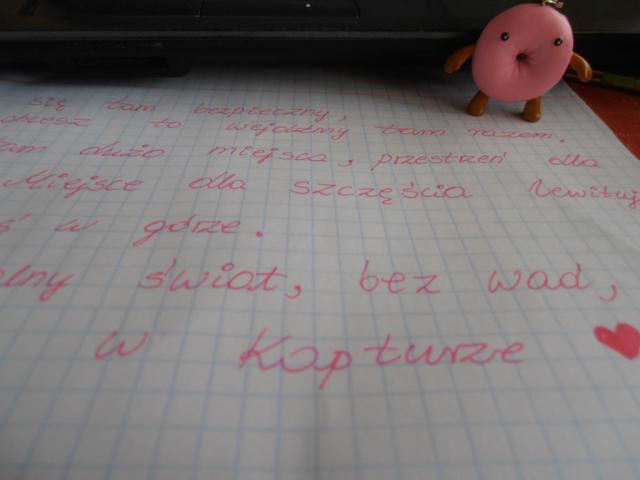 się tam bezpieczny,
chcesz to wejdźmy tam razem.
tam dużo miejsca, przestrzeń dla
Miejsce dla szczęścia lewituj
ś w górze.
olny świat, bez wad,
w Kapturze